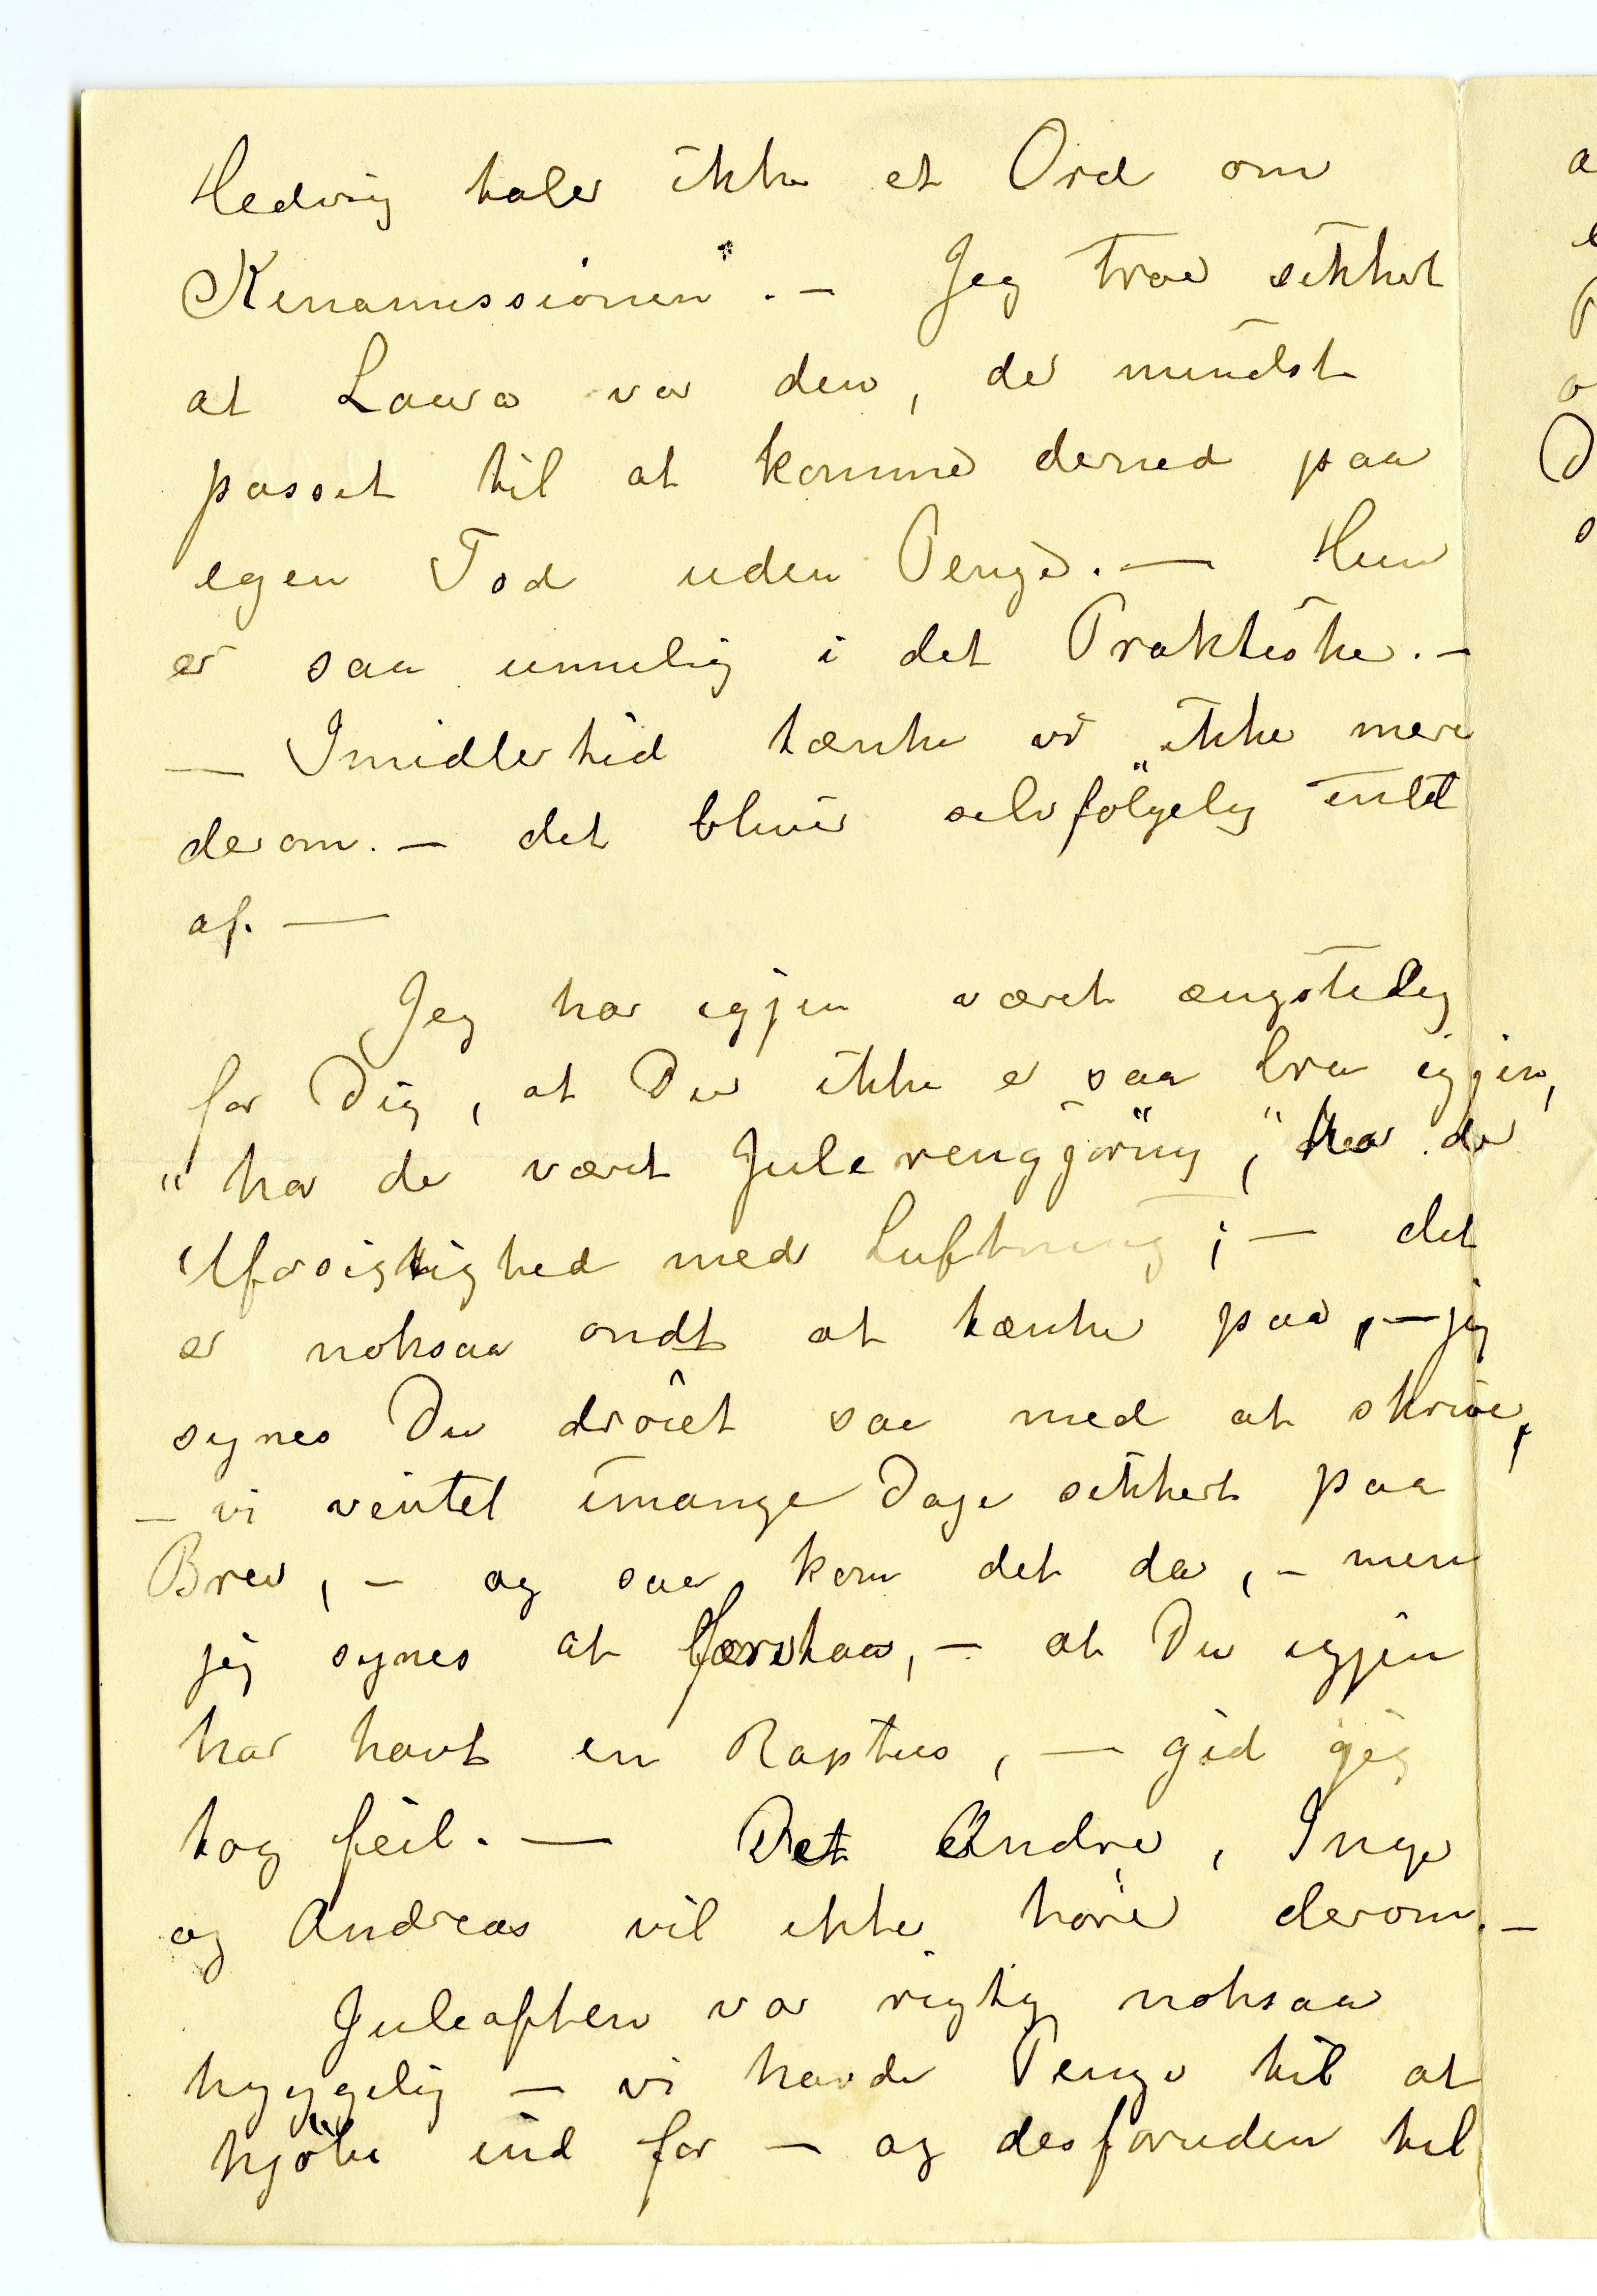 Hedvig taler ikke et Ord om
Kinamissionen". – Jeg tror sikkert
at Laura var den, der mindst
passet til at komme derned paa
egen Fod uden Penge. — Hun
er saa umulig i det Praktiske. –
— Imidlertid tænker vi ikke mere
derom. – det bliver selvfölgelig intet
af. —
Jeg har igjen været ængstelig
for Dig, at Du ikke er saa bra igjen,
" har der været Julerengjöring", har der
Uforsigtighed med Luftning; — det
er noksaa ondt at tænke paa, — jeg
synes Du dröiet saa med at skrive,
– vi ventet i mange Dage sikkert paa
Brev, – og saa kom det da, – men
jeg synes at forstaa, – at Du igjen
har havt en Raptus, — gid jeg
tog feil. — Det Andre, Inger
og Andreas vil ikke höre derom. –
Juleaften var rigtig noksaa
hyggelig – vi havde Penge til at
kjöbe ind for – og desforuden til
a
e
P
o
D
s